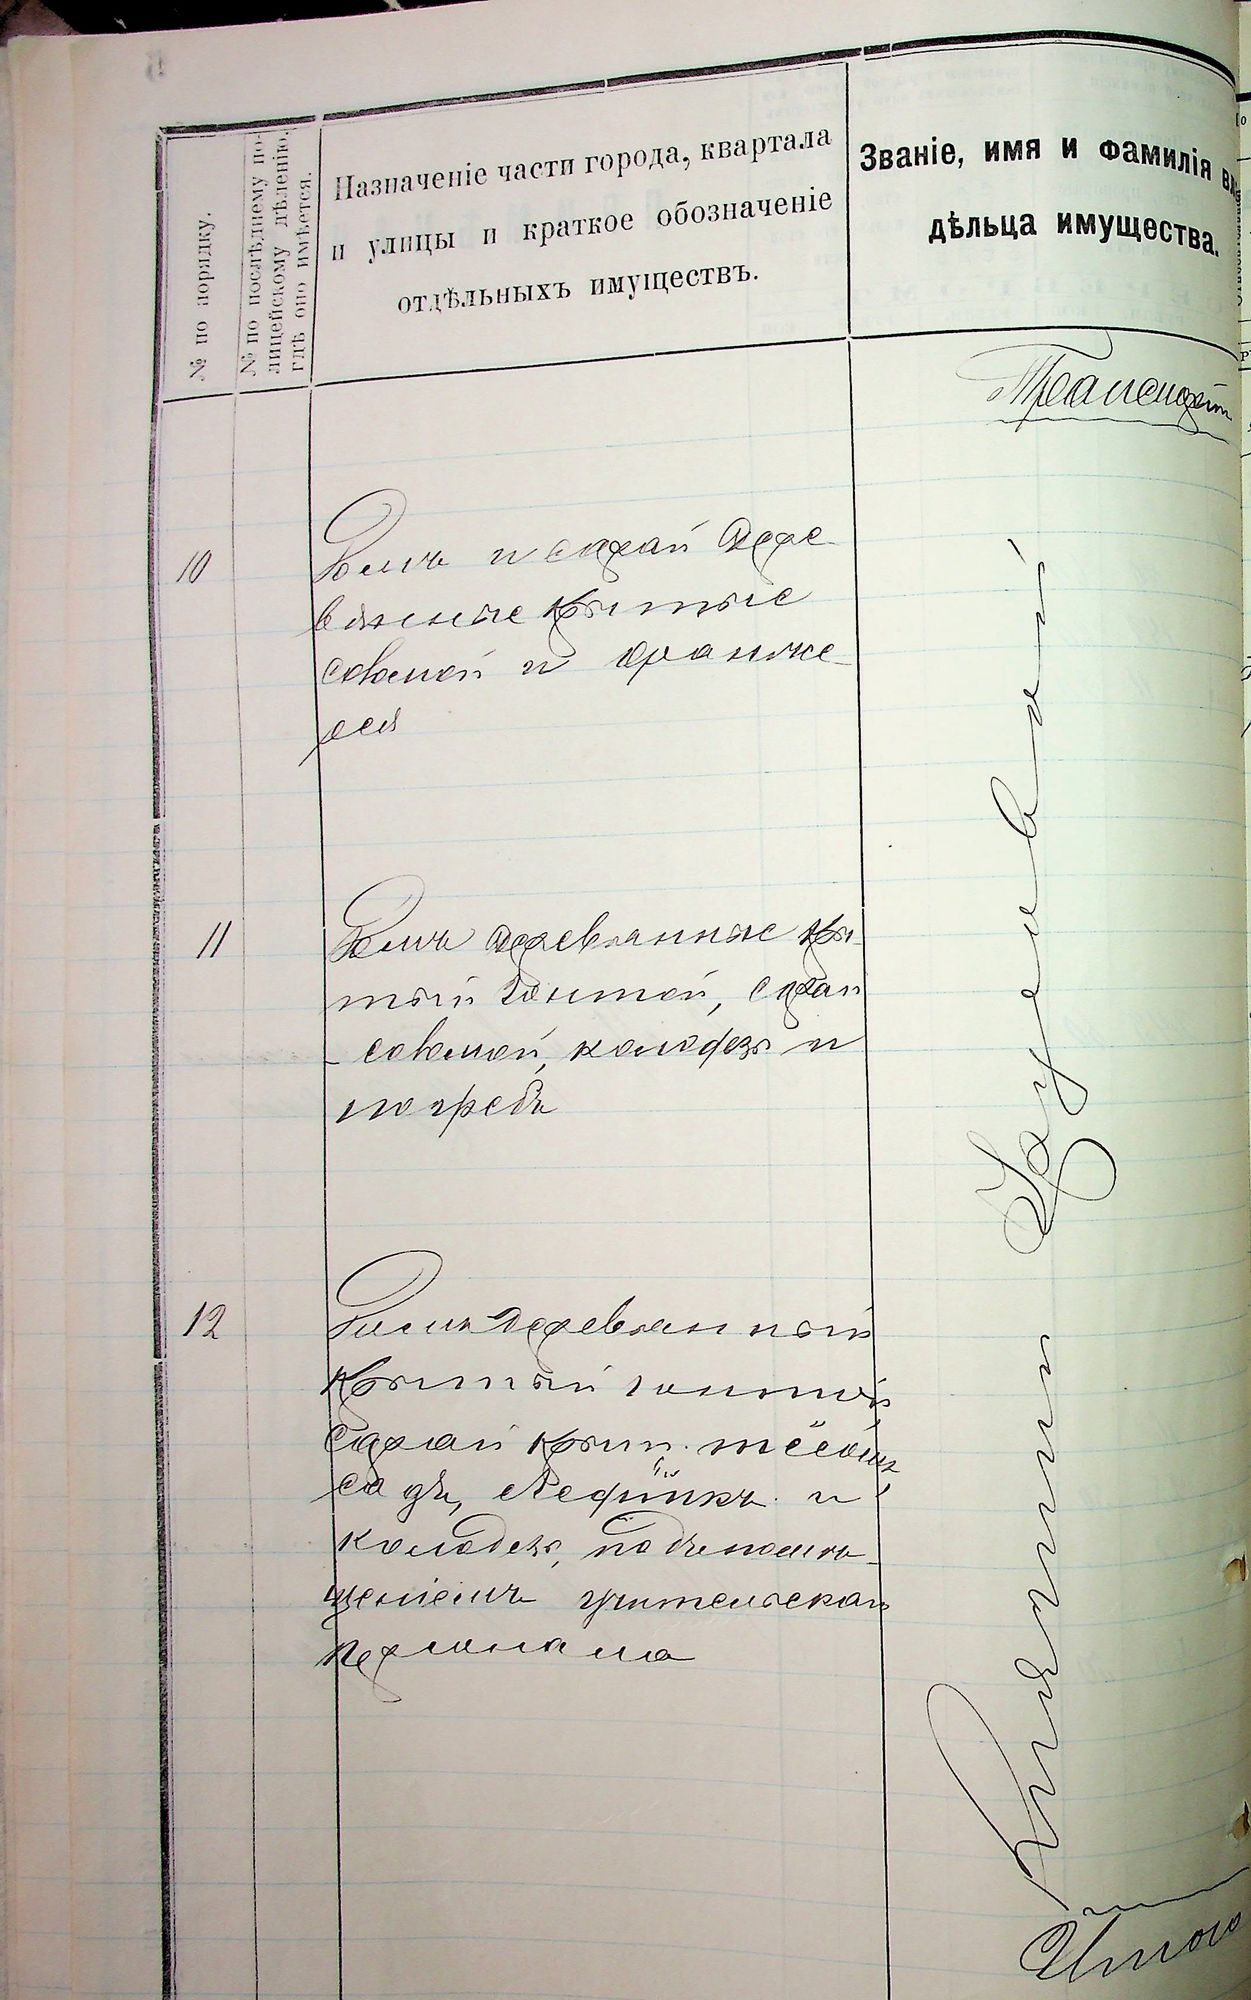 № по порядку.
№ по послѣднему по-
лицейскому дѣленію,
гдѣ оно имѣется.
Назначеніе части города, квартала
и улицы и краткое обозначеніе
отдѣльныхъ имуществъ.
Званіе, имя и фамилія вла
дѣльца имущества.
Транспортъ
10
Домъ и сарай дере
вянные крытые
соломой и оранже
рея
11
Домъ деревянные кры
тый гонтой, сарай
соломой, колодезь и
погребъ
12
Домъ деревянный
крытый гонтой
сарай крыт. тёсомъ
садъ, ледникъ и
колодезь, подъ помѣ
щеніемъ учительскаго
персонала
Княгини
Итого